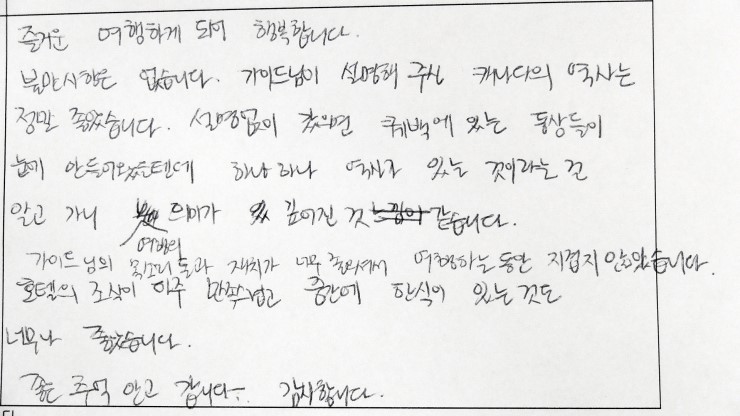 즐거운 여행하게 되어 행복합니다.
불만사항은 없습니다. 가이드님이 설명해 주신 캐나다의 역사는
정말 좋았습니다. 설명없이 갔으면 퀘백에 있는 동상들이
눈에 안들어왔을텐데 하나하나 역사가 있는 것이라는 걸
알고 가니 여행의 의미가 깊어진 것 같습니다.
가이드님의 목소리 톤과 재치가 너무 좋으셔서 여행하는 동안 지겹지 않았습니다.
호텔의 조식이 아주 만족스럽고 중간에 한식이 있는 것도
너무나 좋았습니다.
좋은 추억 안고 갑니다. 감사합니다.